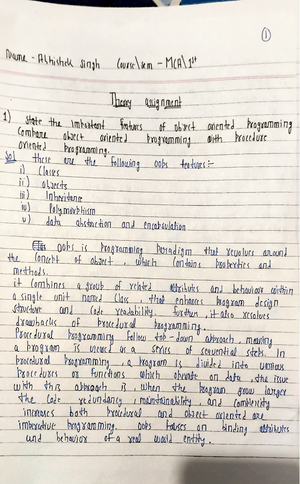 ①
Name - Abhishek Singh Course/sem - MCA/1st
Theory assignment
1) State the important features of object oriented programming
Compare object oriented programming with procedure
oriented programming.
Sol these are the following oobs features:-
i) Classes
ii) objects
iii) Inheritance
iv) Polymorphism
v) data abstraction and encapsulation
oobs is Programming Paradigm that revolves around
the concept of object, which contains properties and
methods.
it combines a group of related attributes and behaviour within
a single unit named class, that enhances program design
structure and code readability. further, it also resolves
drawbacks of procedural programming.
Procedural Programming follow top-down approach, meaning
a program is viewed as a series of sequential steps. In
procedural programming, a program is divided into various
Procedures or functions which operate on data, the issue
with this approach is when the program grow larger
the code redundancy, maintainability, and complexity
increases both procedural and object oriented are
imperative programming. oobs focuses on binding attributes
and behavior of a real world entity.